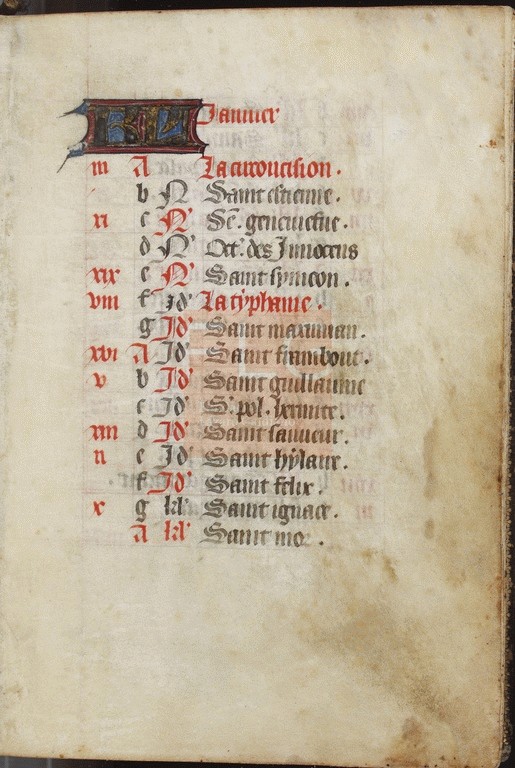 KL Janvier
iii A La circoncision.
b N Saint estienne.
xi c N Se. geneviefve.
d N Oct. des Innocens
xix e N Saint symeon.
viii f Id La typhanie.
g Id Saint maximian.
xvi A Id Saint frambout.
v b Id Saint guillaume
c Id S. pol. hermite.
xiii d Id Saint sauveur.
ii e Id Saint hylaire.
f Id Saint felix.
x g kl Saint ignace.
A kl Saint mor.